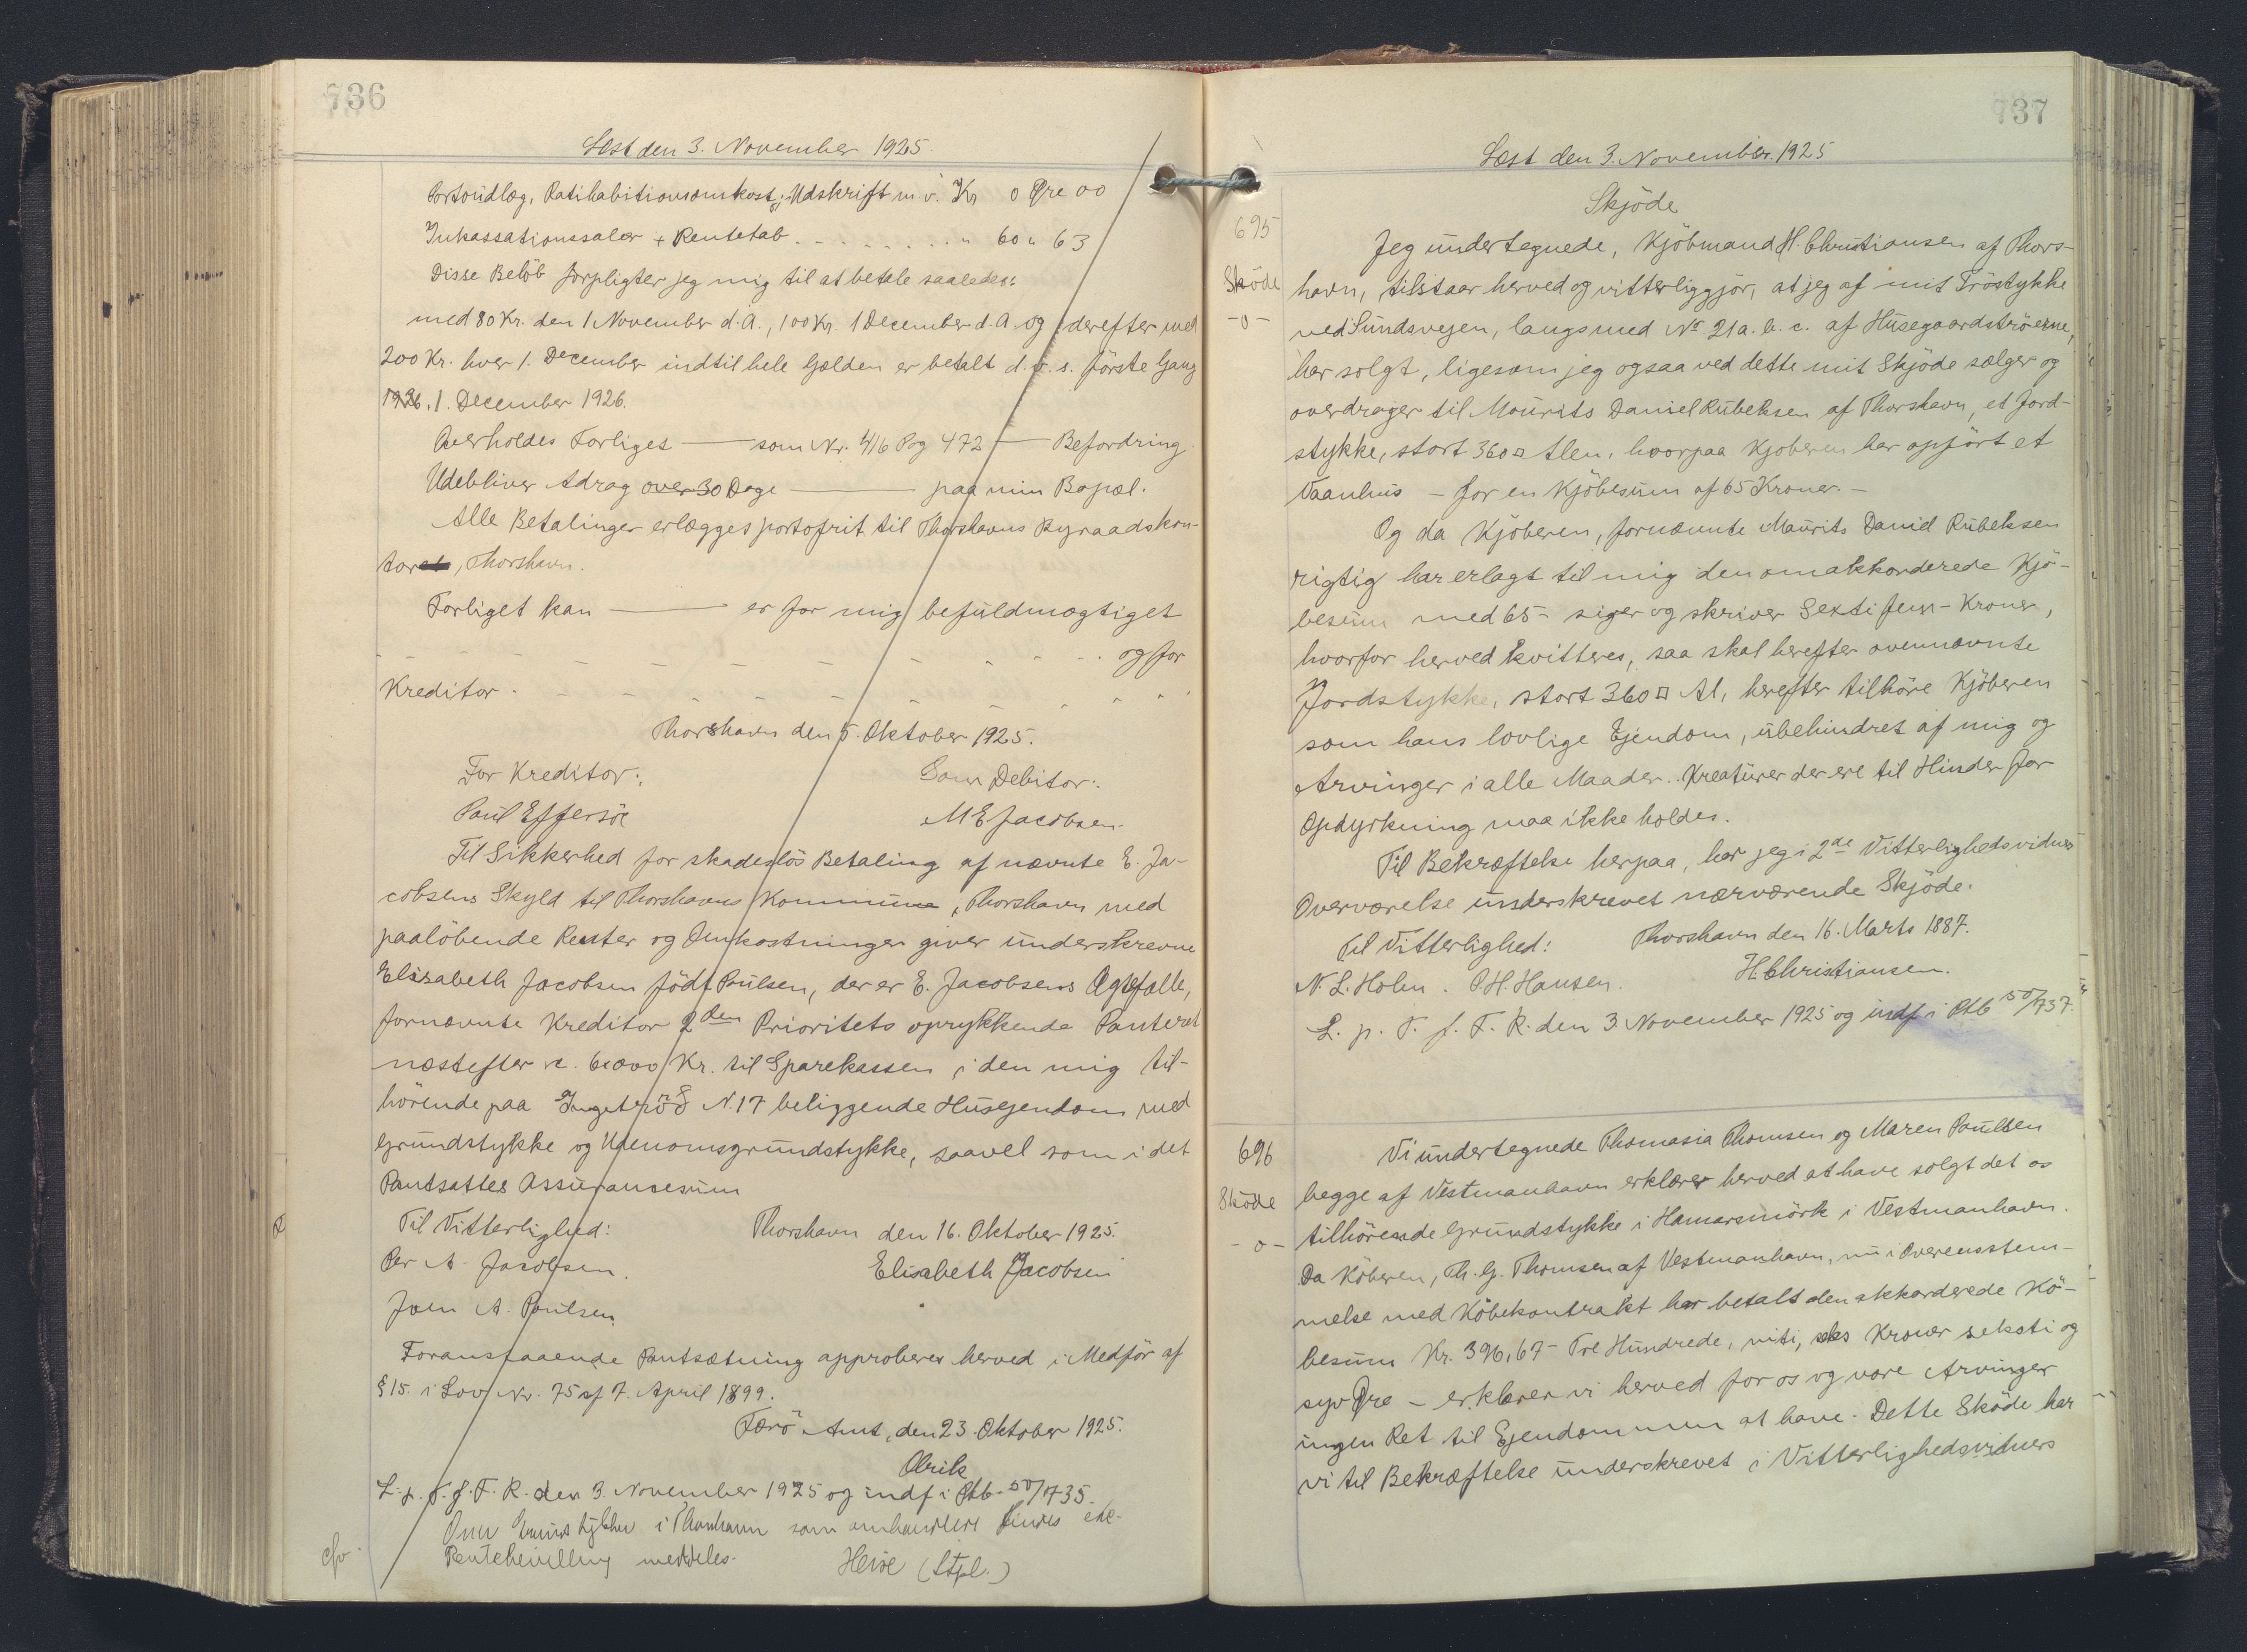 736
Læst den 3. November 1925.
Portoudlæg, Ratihabitionsomkost; Udskrift m.v. Kr 0 Øre 00
Inkassationssalær + Rentetab . . . . . . . . " 60 " 63
Disse Beløb forpligter jeg mig til at betale saaledes:
med 80 Kr. den 1 November d.A., 100 Kr. 1 December d.A. og derefter med
200 Kr. hver 1. December indtil hele Gælden er betalt d.v.s. første Gang
1926. 1. December 1926.
Overholdes Forliges — som Nr. 416 Pag 472 — Befordring.
Udebliver Adrag over 30 Dage — paa min Bopæl.
Alle Betalinger erlægges portofrit til Thorshavns Byraadskon-
toret, Thorshavn.
Forliget kan — er for mig befuldmægtiget
og for
Kreditor.
Thorshavn den 5. Oktober 1925.
For Kreditor: Som Debitor:
Poul Effersöe M E Jacobsen
Til Sikkerhed for skadeslös Betaling af nævnte E. Ja-
cobsens Skyld til Thorshavns Kommune, Thorshavn med
paalöbende Renter og Omkostninger giver underskrevne
Elisabeth Jacobsen född Poulsen, der er E. Jacobsens Ægtefælle,
fornævnte Kreditor 2den Prioritets oprykkende Panteret
næstefter 6000 Kr. til Sparekassen i den mig til-
hörende paa N. 17 beliggende Husejendom med
Grundstykke og Udenomsgrundstykke, saavel som i det
Pantsattes Assurancesum
Til Vitterlighed: Thorshavn den 16. Oktober 1925.
Per A. Jacobsen. Elisabeth Jacobsen
Joen A. Poulsen.
Foranstaaende Pantsætning approberes herved i Medför af
§ 15. i Lov Nr. 75 af 7. April 1899.
Færö Amt, den 23. Oktober 1925.
Olrik
L. p. T. f. F. R. den 3. November 1925 og indf i Ptb. 50/735.
i Thorshavn som
meddeles. Heise (Stpl.)
737
Læst den 3. November. 1925
Skjöde
695
Sköde
-o-
Jeg undertegnede, Kjöbmand H. Christiansen af Thors-
havn, tilstaar herved og vitterliggjör, at jeg af mit Tröstykke
ved Sundsvejen, langs med No 21 a. b. c. af Husegaardströerne,
har solgt, ligesom jeg ogsaa ved dette mit Skjöde sælger og
overdrager til Maurits Daniel Rubeksen af Thorshavn, et Jord-
stykke, stort 360 □ Alen, hvorpaa Kjoberen har opfört et
Vaanhus – for en Kjöbesum af 65 Kroner. –
Og da Kjöberen, fornævnte Maurits Daniel Rubeksen
rigtig har erlagt til mig den omakkorderede Kjö-
besum med 65 – siger og skriver Sexti fem – Kroner,
hvorfor herved kvitteres, saa skal herefter ovennævnte
Jordstykke, stort 360 □ Al, herefter tilhöre Kjöberen
som hans lovlige Ejendom, ubehindret af mig og
Arvinger i alle Maader. Kreaturer der ere til Hinder for
Opdyrkning maa ikke holdes.
Til Bekræftelse herpaa, har jeg i 2de Vitterlighedsvidners
Overværelse underskrevet nærværende Skjöde.
Til Vitterlighed: Thorshavn den 16. Marts 1887.
N. L. Holm. P.H. Hansen. H. Christiansen.
L. p. T. f. F. R. den 3 November 1925 og indf i Ptb 50/737.
696
Sköde
-o-
Vi undertegnede Thomasia Thomsen og Maren Poulsen
begge af Vestmanhavn erklærer herved at have solgt det os
tilhörende Grundstykke i Hamarsmörk i Vestmanhavn.
Da Köberen, Th. G. Thomsen af Vestmanhavn, nu i Overensstem-
melse med Köbekontrakt har betalt den akkorderede Kö-
besum Kr. 396,67 – Tre Hundrede, niti, seks Kroner seksti og
syv Øre – erklærer vi herved for os og vore Arvinger
ingen Ret til Ejendommen at have. Dette Sköde har
vi til Bekræftelse underskrevet i Vitterlighedsvidners